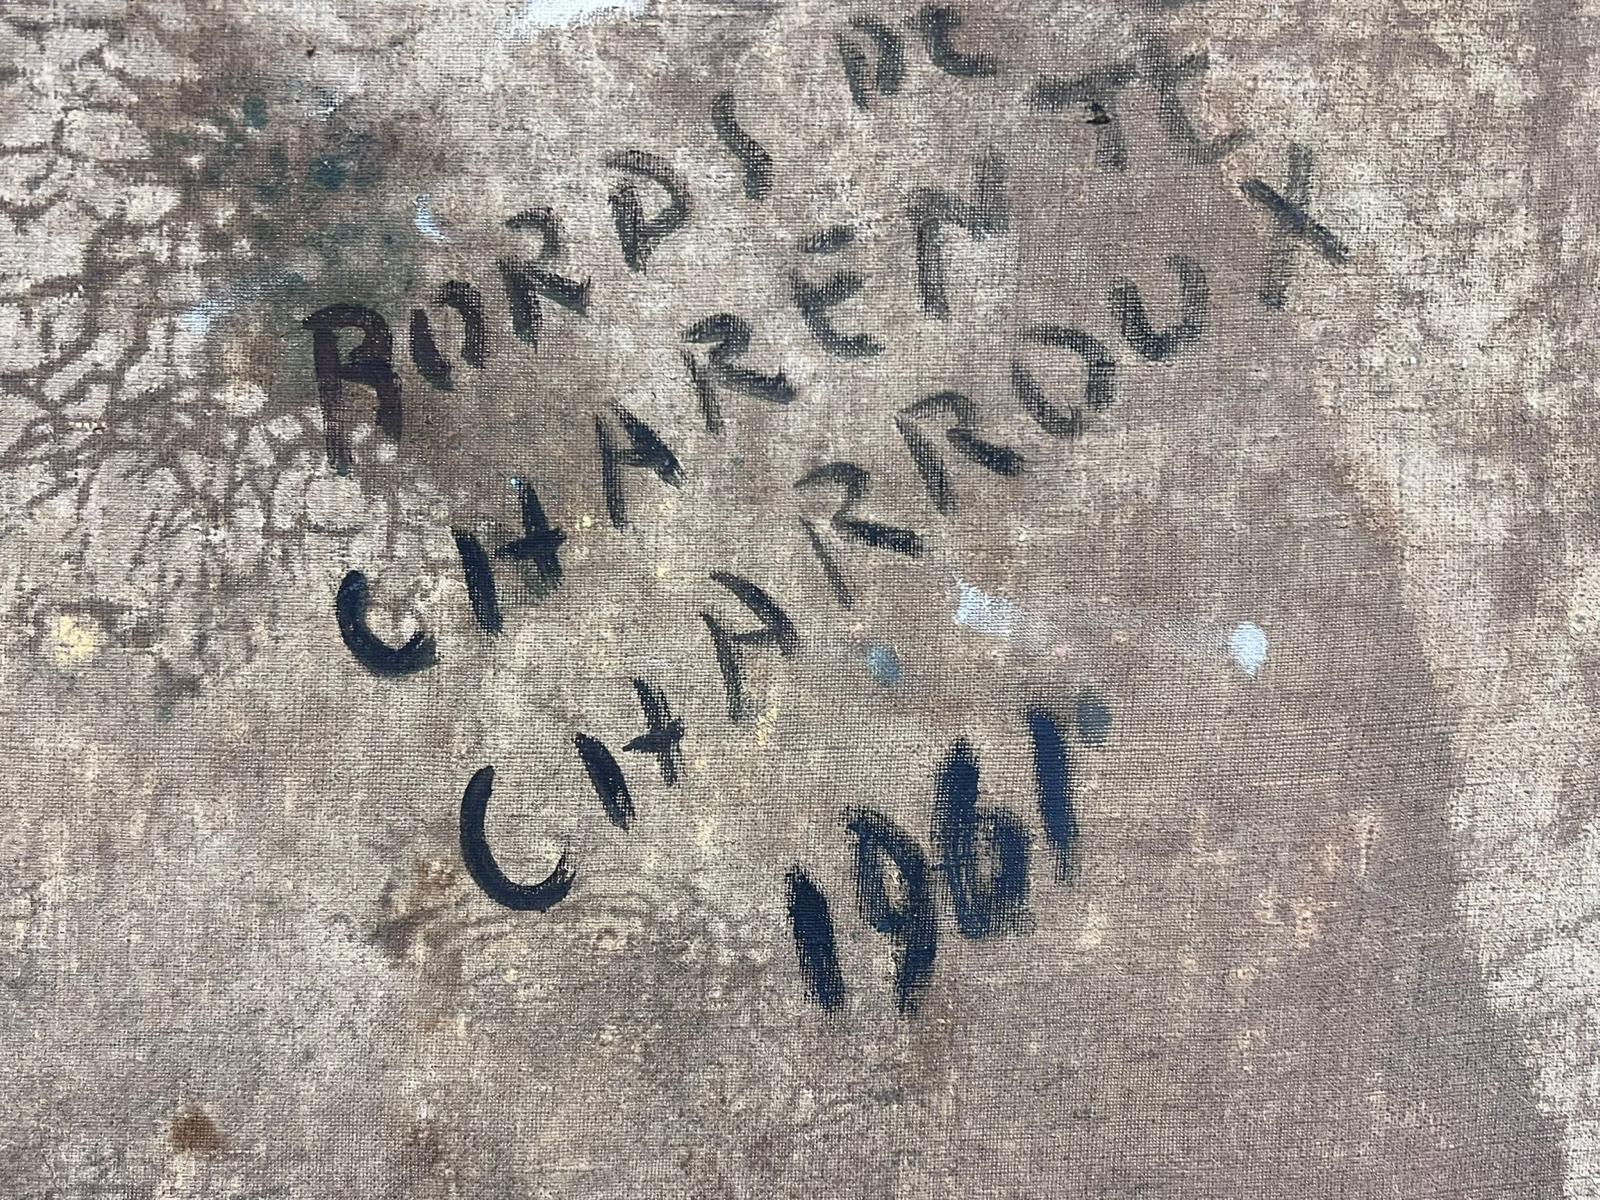 BORDS DE
CHARENTE
CHARROUX
1961